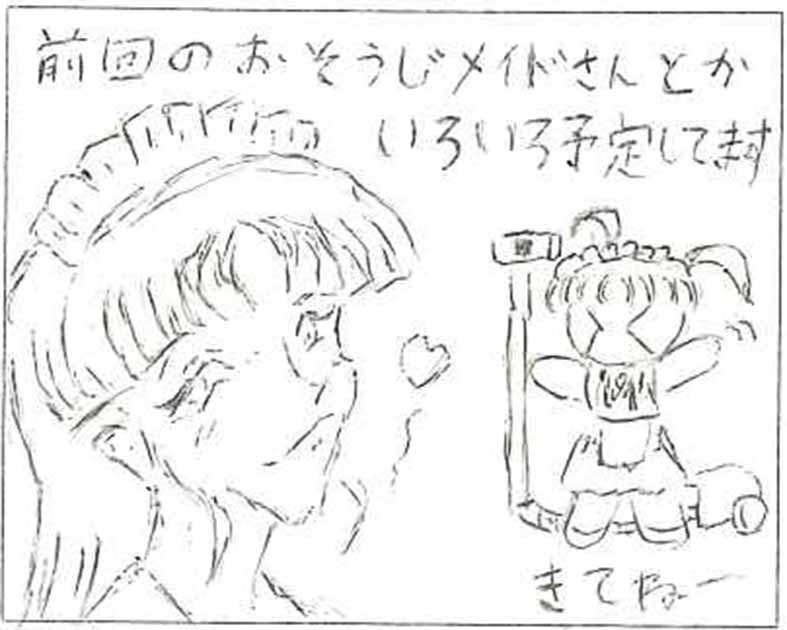 前回のおそうじメイドさんとか
いろいろ予定してます
きてねー